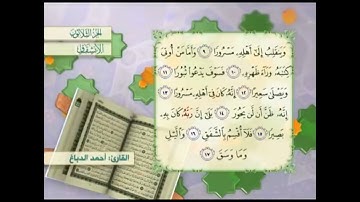 الجزء الثلاثون
الانشقاق
وَيَنقَلِبُ إِلَىٰ أَهْلِهِۦ مَسْرُورًا ٩ وَأَمَّا مَنْ أُوتِيَ
كِتَٰبَهُۥ وَرَآءَ ظَهْرِهِۦ ١٠ فَسَوْفَ يَدْعُوا۟ ثُبُورًا ١١
وَيَصْلَىٰ سَعِيرًا ١٢ إِنَّهُۥ كَانَ فِىٓ أَهْلِهِۦ مَسْرُورًا ١٣
إِنَّهُۥ ظَنَّ أَن لَّن يَحُورَ ١٤ بَلَىٰٓ إِنَّ رَبَّهُۥ كَانَ بِهِۦ
بَصِيرًا ١٥ فَلَآ أُقْسِمُ بِٱلشَّفَقِ ١٦ وَٱلَّيْلِ
وَمَا وَسَقَ ١٧
القارئ: أحمد الدباغ